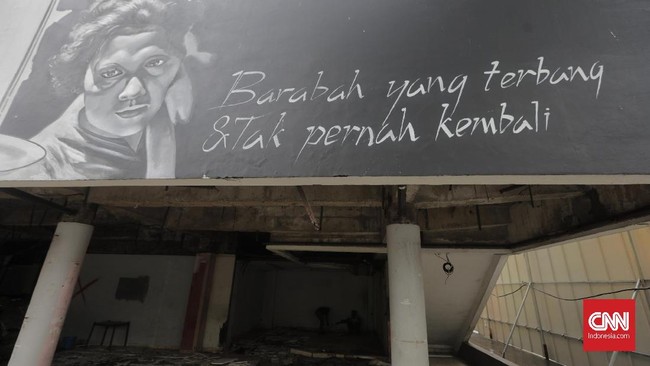 Barabah yang terbang
& Tak pernah kembali
CNN
Indonesia.com